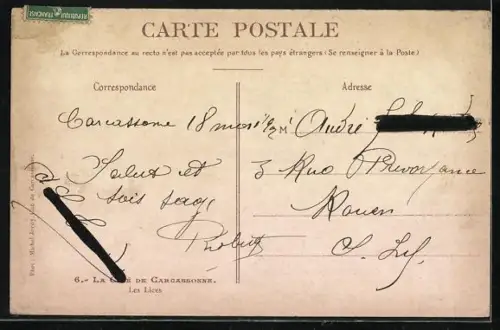 REPUBLIQUE FRANÇAISE
CARTE POSTALE
La Correspondance au recto n'est pas acceptée par tous les pays étrangers (Se renseigner à la Poste)
Correspondance
Adresse
Carcassonne 18 mars
Mr André
Salut et
sois sage
Robert
3 Rue Prevoyance
Rouen
S. Inf.
6. - LA CITÉ DE CARCASSONNE.
Les Lices
Phot. Michel Jordy, Cité de Carcassonne